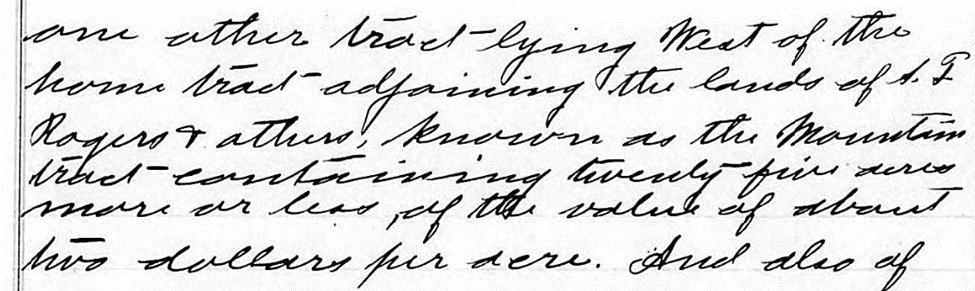 one other tract lying West of the
home tract adjoining the lands of A. T
Rogers & others, known as the Mountain
tract containing twenty five acres
more or less, of the value of about
two dollars per acre. And also of